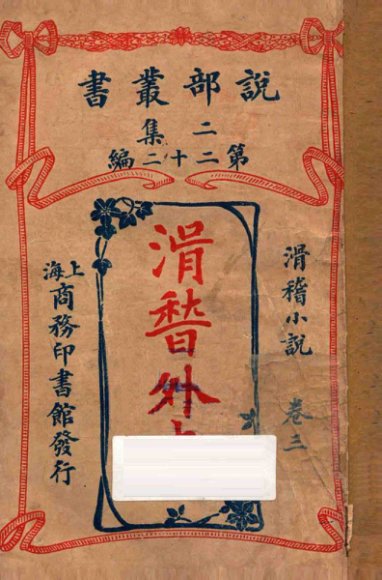 說部叢書
二集
第二十二編
滑稽小說
卷三
滑稽外
上海
商務印書館發行